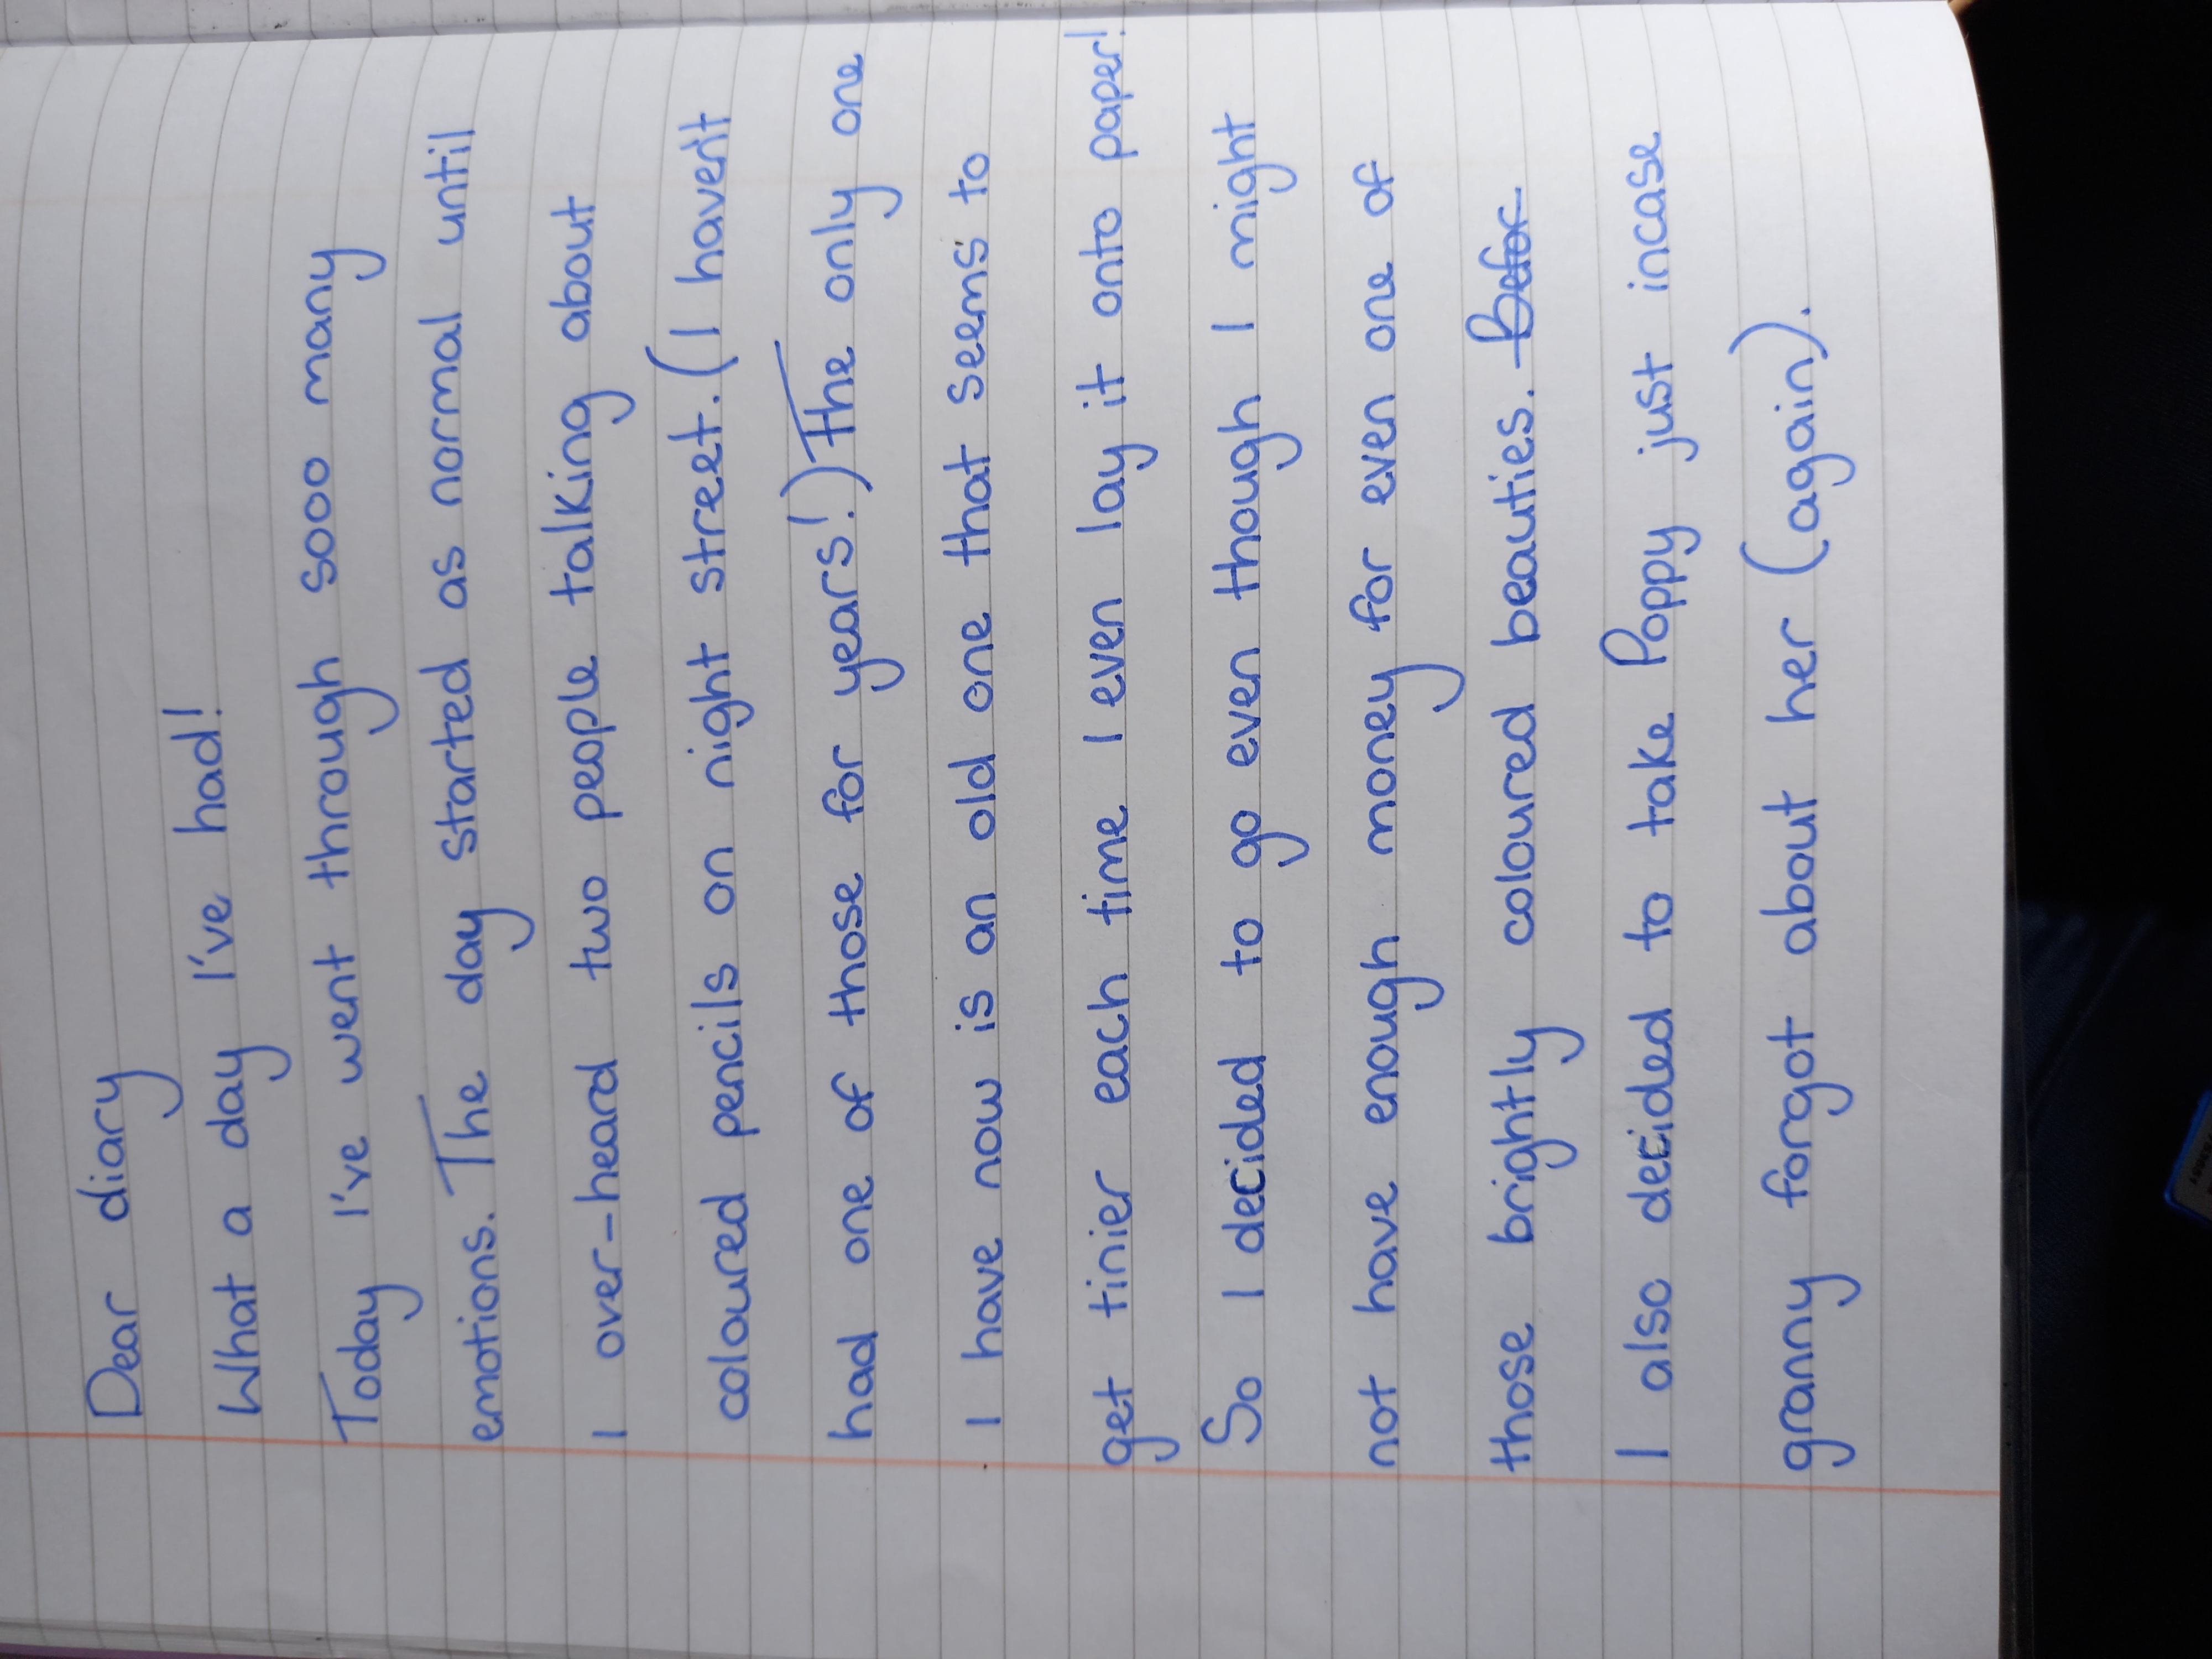 Dear diary
What a day I've had!
Today I've went through sooo many
emotions. The day started as normal until
I over-heard two people talking about
coloured pencils on night street. (I haven't
had one of those for years!) The only one
I have now is an old one that seems to
get tinier each time I even lay it onto paper!
So I decided to go even though I might
not have enough money for even one of
those brightly coloured beauties. Befor
I also decided to take Poppy just incase
granny forgot about her (again).